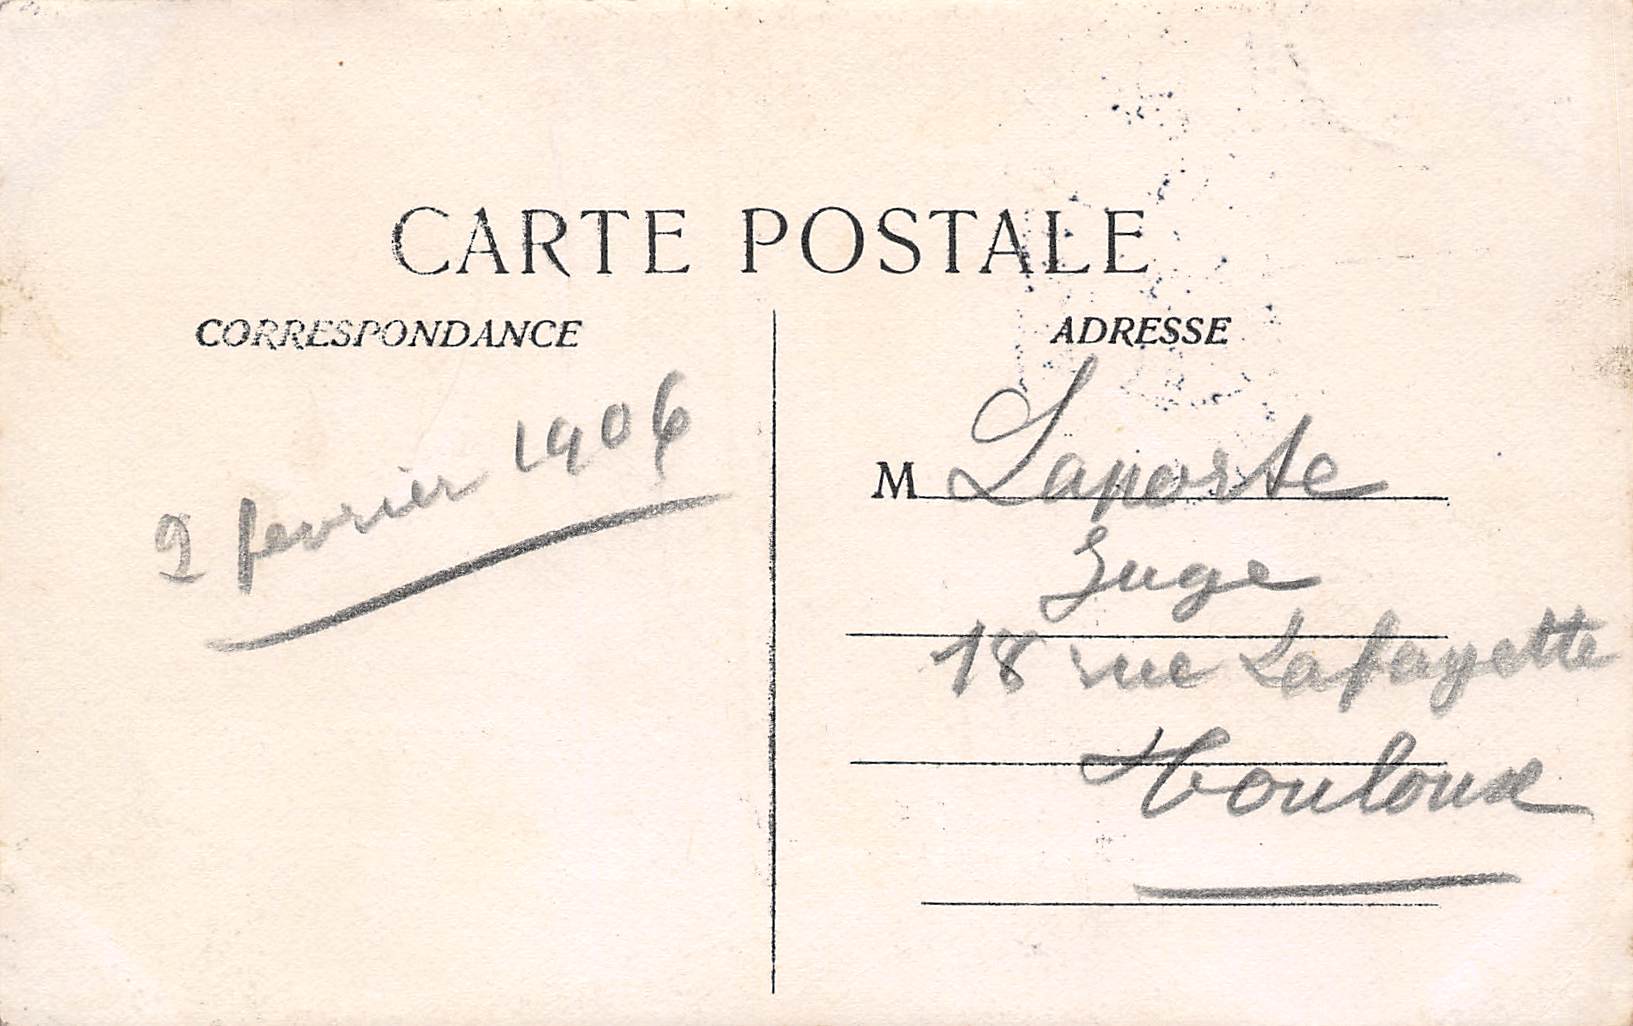 CARTE POSTALE
CORRESPONDANCE
ADRESSE
2 fevrier 1906
M Laporte
Juge
18 rue Lafayette
Toulouse